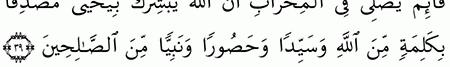 قَآئِمٌ يُصَلِّى فِى ٱلْمِحْرَابِ أَنَّ ٱللَّهَ يُبَشِّرُكَ بِيَحْيَىٰ مُصَدِّقًۢا
بِكَلِمَةٍ مِّنَ ٱللَّهِ وَسَيِّدًا وَحَصُورًا وَنَبِيًّا مِّنَ ٱلصَّٰلِحِينَ ﴿٣٩﴾